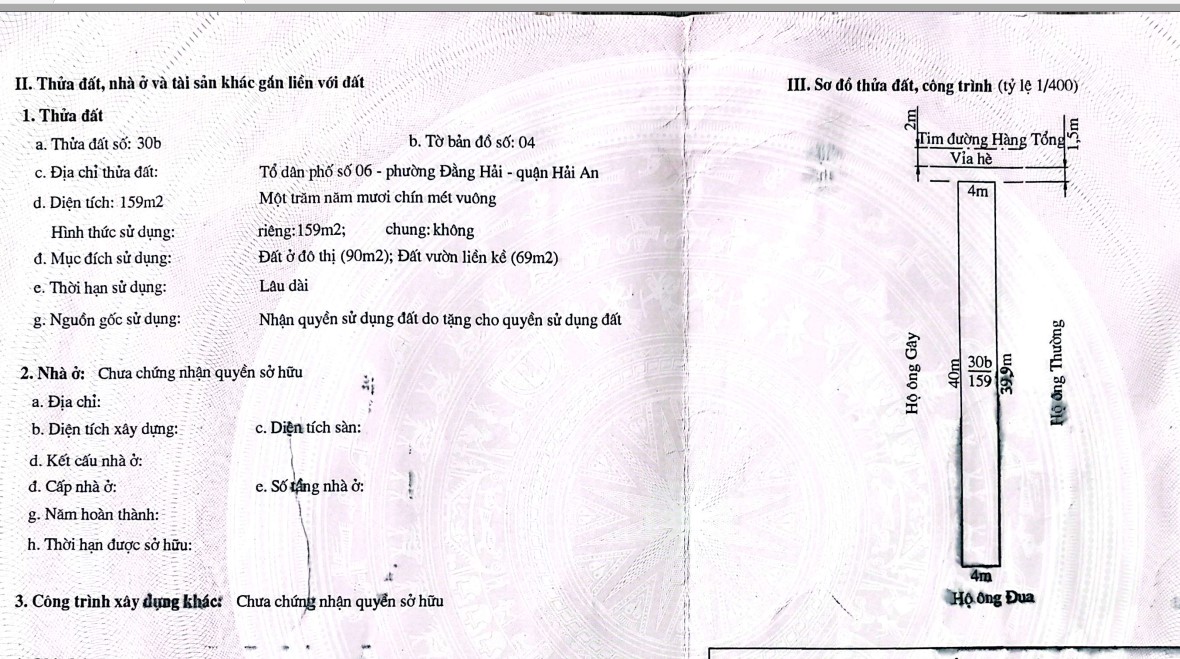 II. Thửa đất, nhà ở và tài sản khác gắn liền với đất
1. Thửa đất
a. Thửa đất số: 30b
b. Tờ bản đồ số: 04
c. Địa chỉ thửa đất: Tổ dân phố số 06 - phường Đằng Hải - quận Hải An
d. Diện tích: 159m2 Một trăm năm mươi chín mét vuông
Hình thức sử dụng: riêng: 159m2; chung: không
đ. Mục đích sử dụng: Đất ở đô thị (90m2); Đất vườn liền kề (69m2)
e. Thời hạn sử dụng: Lâu dài
g. Nguồn gốc sử dụng: Nhận quyền sử dụng đất do tặng cho quyền sử dụng đất
2. Nhà ở: Chưa chứng nhận quyền sở hữu
a. Địa chỉ:
b. Diện tích xây dựng: c. Diện tích sàn:
d. Kết cấu nhà ở:
đ. Cấp nhà ở: e. Số tầng nhà ở:
g. Năm hoàn thành:
h. Thời hạn được sở hữu:
3. Công trình xây dựng khác: Chưa chứng nhận quyền sở hữu
III. Sơ đồ thửa đất, công trình (tỷ lệ 1/400)
2m
Tim đường Hàng Tổng
1,5m
Vỉa hè
4m
Hộ ông Gây
40m
30b
159
39,9m
Hộ ông Thường
4m
Hộ ông Đua